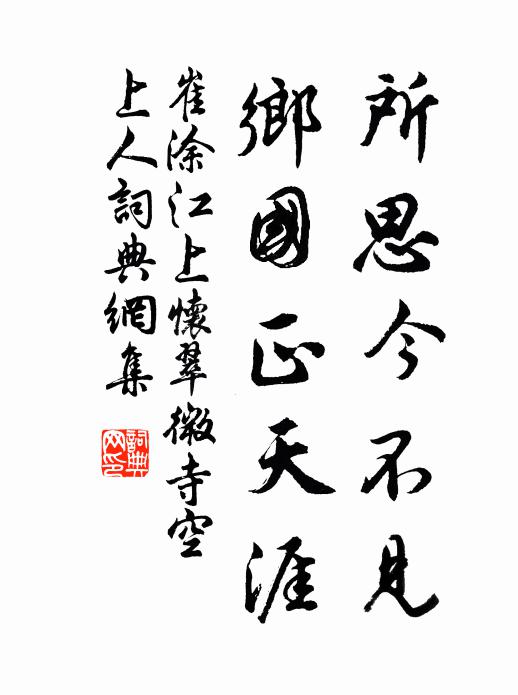 所思今不見
鄉國正天涯
崔涂江上懷翠微寺空
上人詞典網集
詞典網印